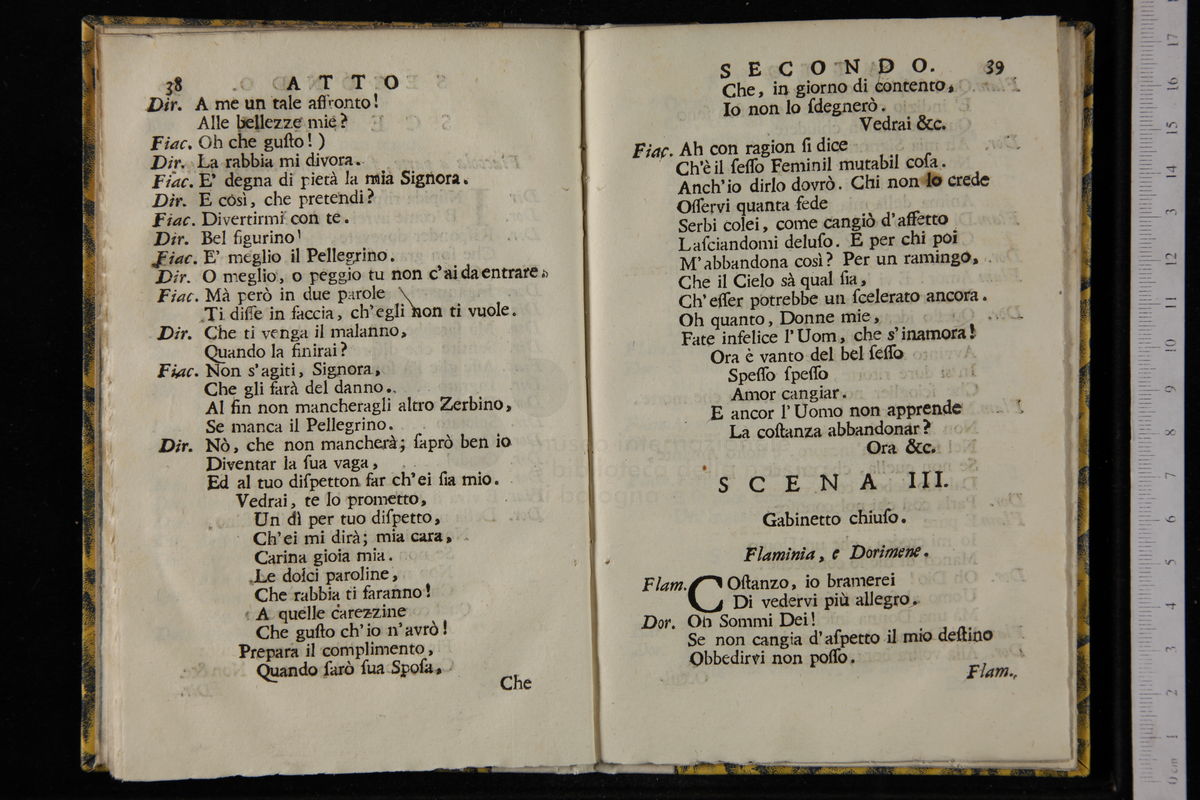 38 ATTO
Dir. A me un tale affronto!
Alle bellezze mie?
Fiac. Oh che guſto!)
Dir. La rabbia mi divora.
Fiac. E' degna di pietà la mia Signora.
Dir. E così, che pretendi?
Fiac. Divertirmi con te.
Dir. Bel figurino!
Fiac. E' meglio il Pellegrino.
Dir. O meglio, o peggio tu non c'ai da entrare.
Fiac. Mà però in due parole
Ti diſſe in faccia, ch'egli non ti vuole.
Dir. Che ti venga il malanno,
Quando la finirai?
Fiac. Non s'agiti, Signora,
Che gli farà del danno.
Al fin non mancheragli altro Zerbino,
Se manca il Pellegrino.
Dir. Nò, che non mancherà; ſaprò ben io
Diventar la ſua vaga,
Ed al tuo diſpetton far ch'ei ſia mio.
Vedrai, te lo prometto,
Un dì per tuo diſpetto,
Ch'ei mi dirà; mia cara,
Carina gioia mia.
Le dolci paroline,
Che rabbia ti faranno!
A quelle carezzine
Che guſto ch'io n'avrò!
Prepara il complimento,
Quando ſarò ſua Spoſa,
Che
SECONDO. 39
Che, in giorno di contento,
Io non lo ſdegnerò.
Vedrai &c.
Fiac. Ah con ragion ſi dice
Ch'è il ſeſſo Feminil mutabil coſa.
Anch'io dirlo dovrò. Chi non lo crede
Oſſervi quanta fede
Serbi colei, come cangiò d'affetto
Laſciandomi deluſo. E per chi poi
M'abbandona così? Per un ramingo,
Che il Cielo sà qual ſia,
Ch'eſſer potrebbe un ſcelerato ancora.
Oh quanto, Donne mie,
Fate infelice l'Uom, che s'inamora!
Ora è vanto del bel ſeſſo
Speſſo ſpeſſo
Amor cangiar.
E ancor l'Uomo non apprende
La coſtanza abbandonar?
Ora &c.
SCENA III.
Gabinetto chiuſo.
Flaminia, e Dorimene.
Flam. COſtanzo, io bramerei
Di vedervi più allegro.
Dor. Oh Sommi Dei!
Se non cangia d'aſpetto il mio deſtino
Obbedirvi non poſſo.
Flam.